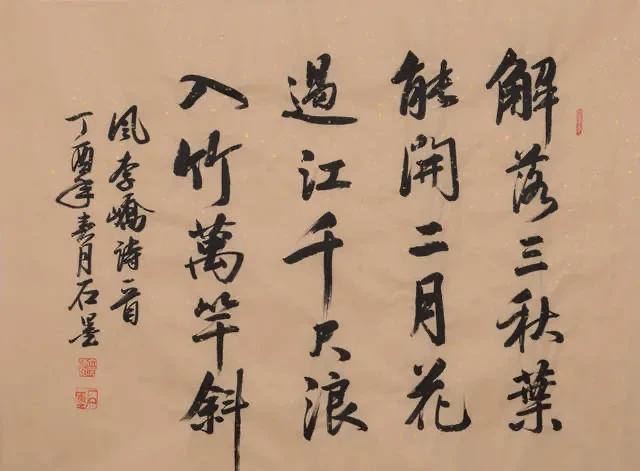 解落三秋葉
能開二月花
過江千尺浪
入竹萬竿斜
風李嶠詩一首
丁酉年春月石墨